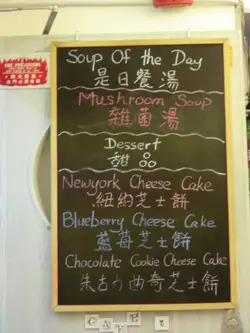 Soup Of the Day
是日餐湯
Mushroom Soup
雜菌湯
Dessert
甜品
Newyork Cheese Cake
紐約芝士餅
Blueberry Cheese Cake
藍莓芝士餅
Chocolate Cookie Cheese Cake
朱古力曲奇芝士餅